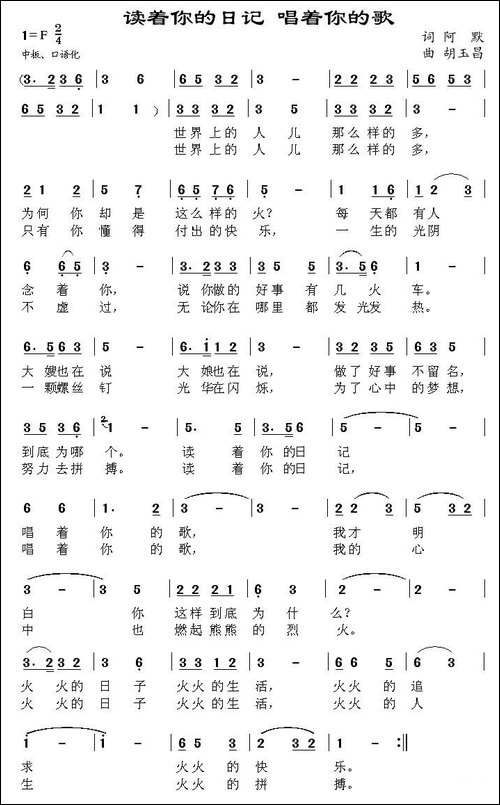 读着你的日记 唱着你的歌
1=F 2/4
词 阿 默
中板、口语化
曲 胡玉昌
(3· 2 3 6 | 3 6 | 6 5 3 2 | 3 - | 6 5 3 2 | 3 - |
6 5 3 2 | 1 1 ) | 3 3 3 2 | 3 3 | 3 3 3 2 | 3 - |
世界上的 人 儿 那么样的 多,
世界上的 人 儿 那么样的 多,
2 1 2 | 5 7 | 6 5 7 6 | 5 - | 1 1 6 | 1 2 3 |
为何 你 却 是 这么样的 火? 每 天都 有人
只有 你 懂 得 付出的快 乐, 一 生的 光阴
6 6 5 | 3 - | 3· 2 3 3 | 3 5 5 | 3· 5 6 | 1 - |
念 着 你, 说 你做的 好事 有 几 火 车。
不 虚 过, 无 论你在 哪里 都 发 光发 热。
6· 5 6 3 | 5 - | 6· i 3 2 | 3 - | 2 3 1 2 | 3 3 2 |
大 嫂也在 说 大 娘也在 说, 做了好事 不留名,
一 颗螺丝 钉 光 华在闪 烁, 为了心中 的梦想,
3 5 3 6 | 1 - | 5· 5 | 3· 5 6 | 5 - | 5 - |
到底为哪 个。 读 着 你 的日 记
努力去拼 搏。 读 着 你 的日 记,
6 6 | 1· 2 | 3 - | 3 - | 2 2 3 | 5 3 2 |
唱 着 你 的 歌, 我才 明
唱 着 你 的 歌, 我的 心
3 - | 3 5 | 2 2 2 1 | 6 3 | 2 - | 2 - |
白 你 这样到底 为 什 么?
中 也 燃起熊熊 的 烈 火。
3· 2 3 2 | 3 6 | 3 3 1 2 | 3 - | 6 6 5 | 6 3 |
火 火的 日 子 火火的生 活, 火火 的 追
火 火的 日 子 火火的生 活, 火火 的 人
1 - | 1 - | 6 6 5 3 | 2 3 2 | 1 - :‖
求 火火 的 快 乐。
生 火火 的 拼 搏。